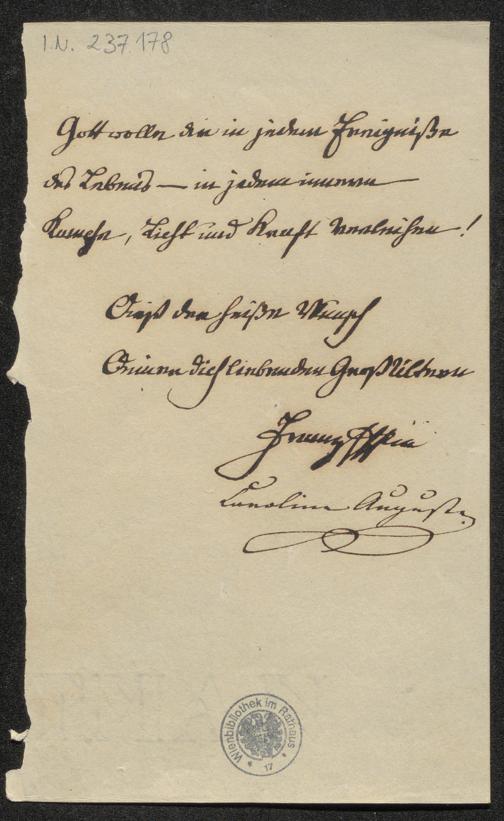 I.N. 237.178
Gott wolle dir in jedem Ereigniße
des Lebens — in jedem innern
Kampfe, Licht und Kraft verleihen!
Dieß der heiße Wunsch
Deiner dich liebenden Großältern
Franz
Caroline Auguste
Wienbibliothek im Rathaus
17